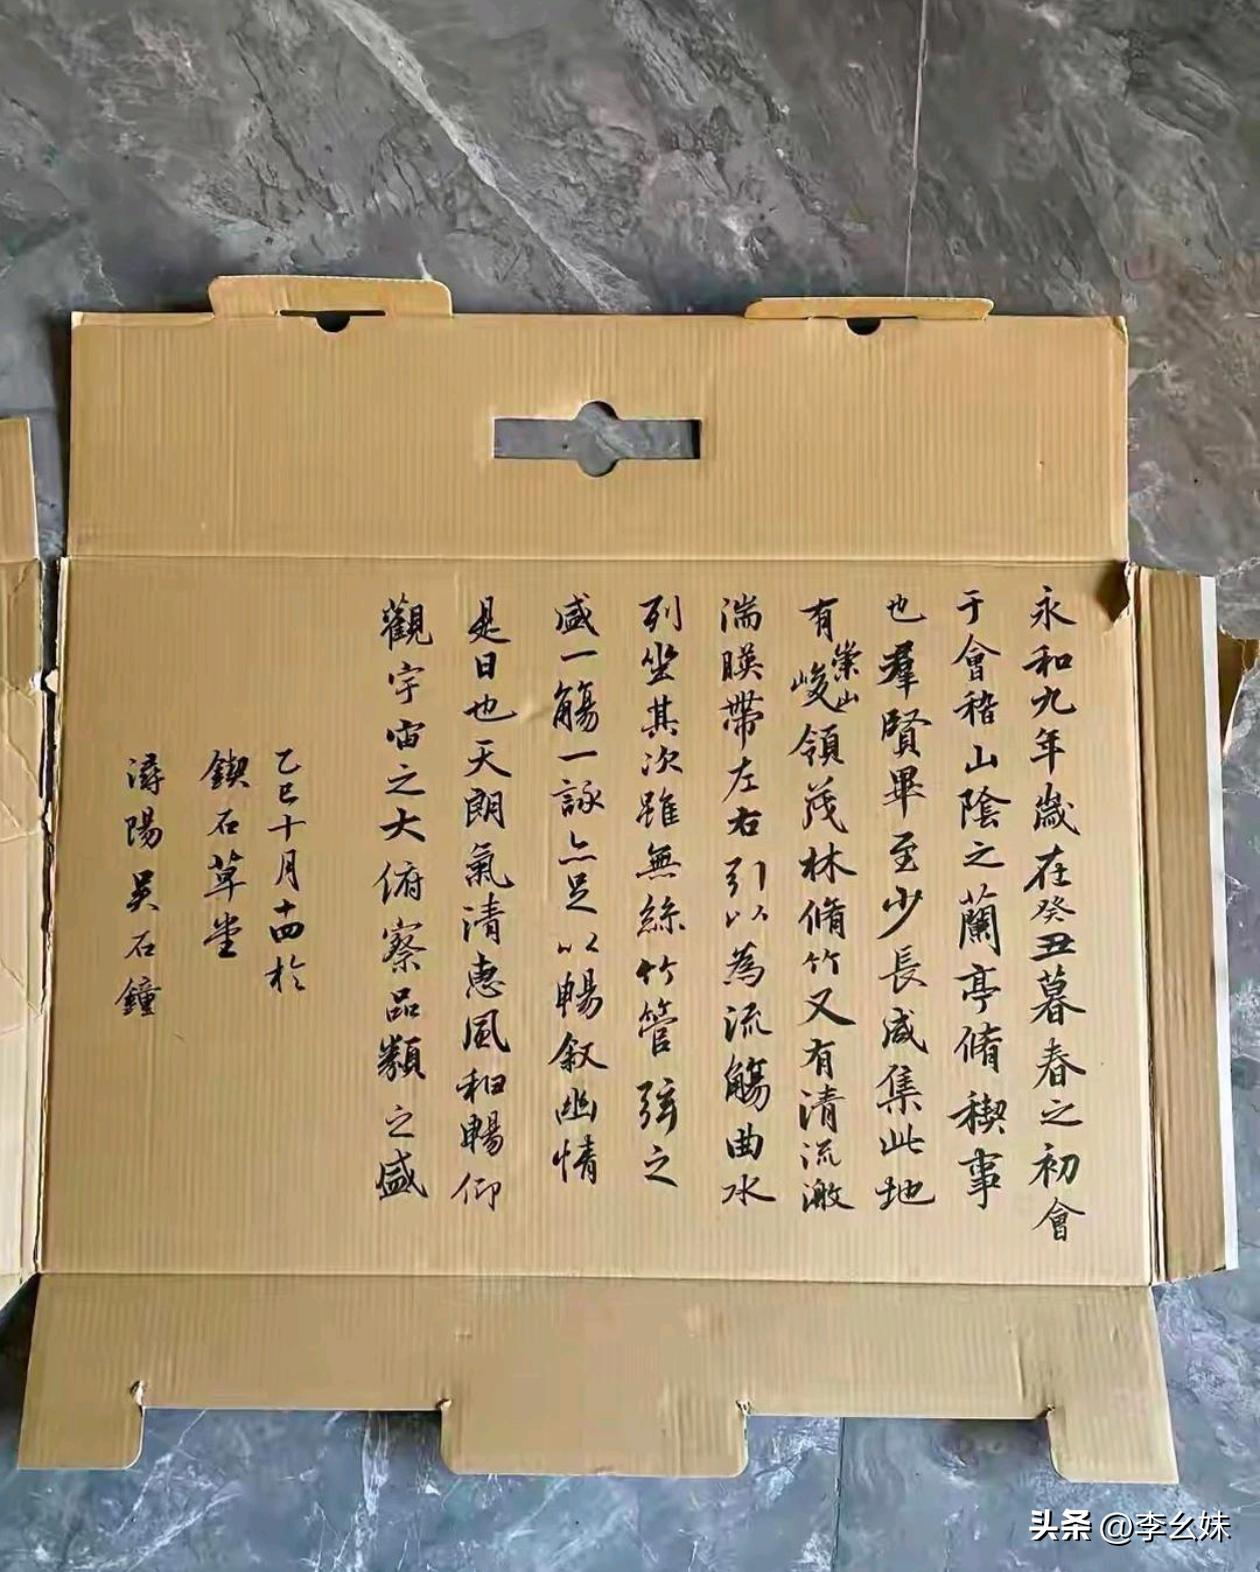 永和九年歲在癸丑暮春之初會
于會稽山陰之蘭亭脩稧事
也羣賢畢至少長咸集此地
有崇山峻領茂林脩竹又有清流激
湍暎帶左右引以為流觴曲水
列坐其次雖無絲竹管弦之
盛一觴一詠亦足以暢叙幽情
是日也天朗氣清惠風和暢仰
觀宇宙之大俯察品類之盛
乙巳十月十四於
鍥石草堂
潯陽吴石鐘
头条 @李幺妹